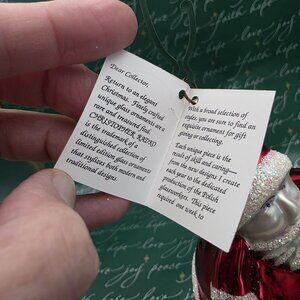 Dear Collector,
Return to an elegant
Christmas. Finely crafted
unique glass ornaments are a
rare and treasured find.
CHRISTOPHER RADKO
is the trademark of a
distinguished collection of
limited edition glass ornaments
that stylizes both modern and
traditional designs.
With a broad selection of
styles, you are sure to find an
exquisite ornament for gift
giving or collecting.
Each unique piece is the
result of skill and caring—
from the new designs I create
each year to the dedicated
production of the Polish
glassblowers. This piece
required one week to
faith
hope
joy
peace
love